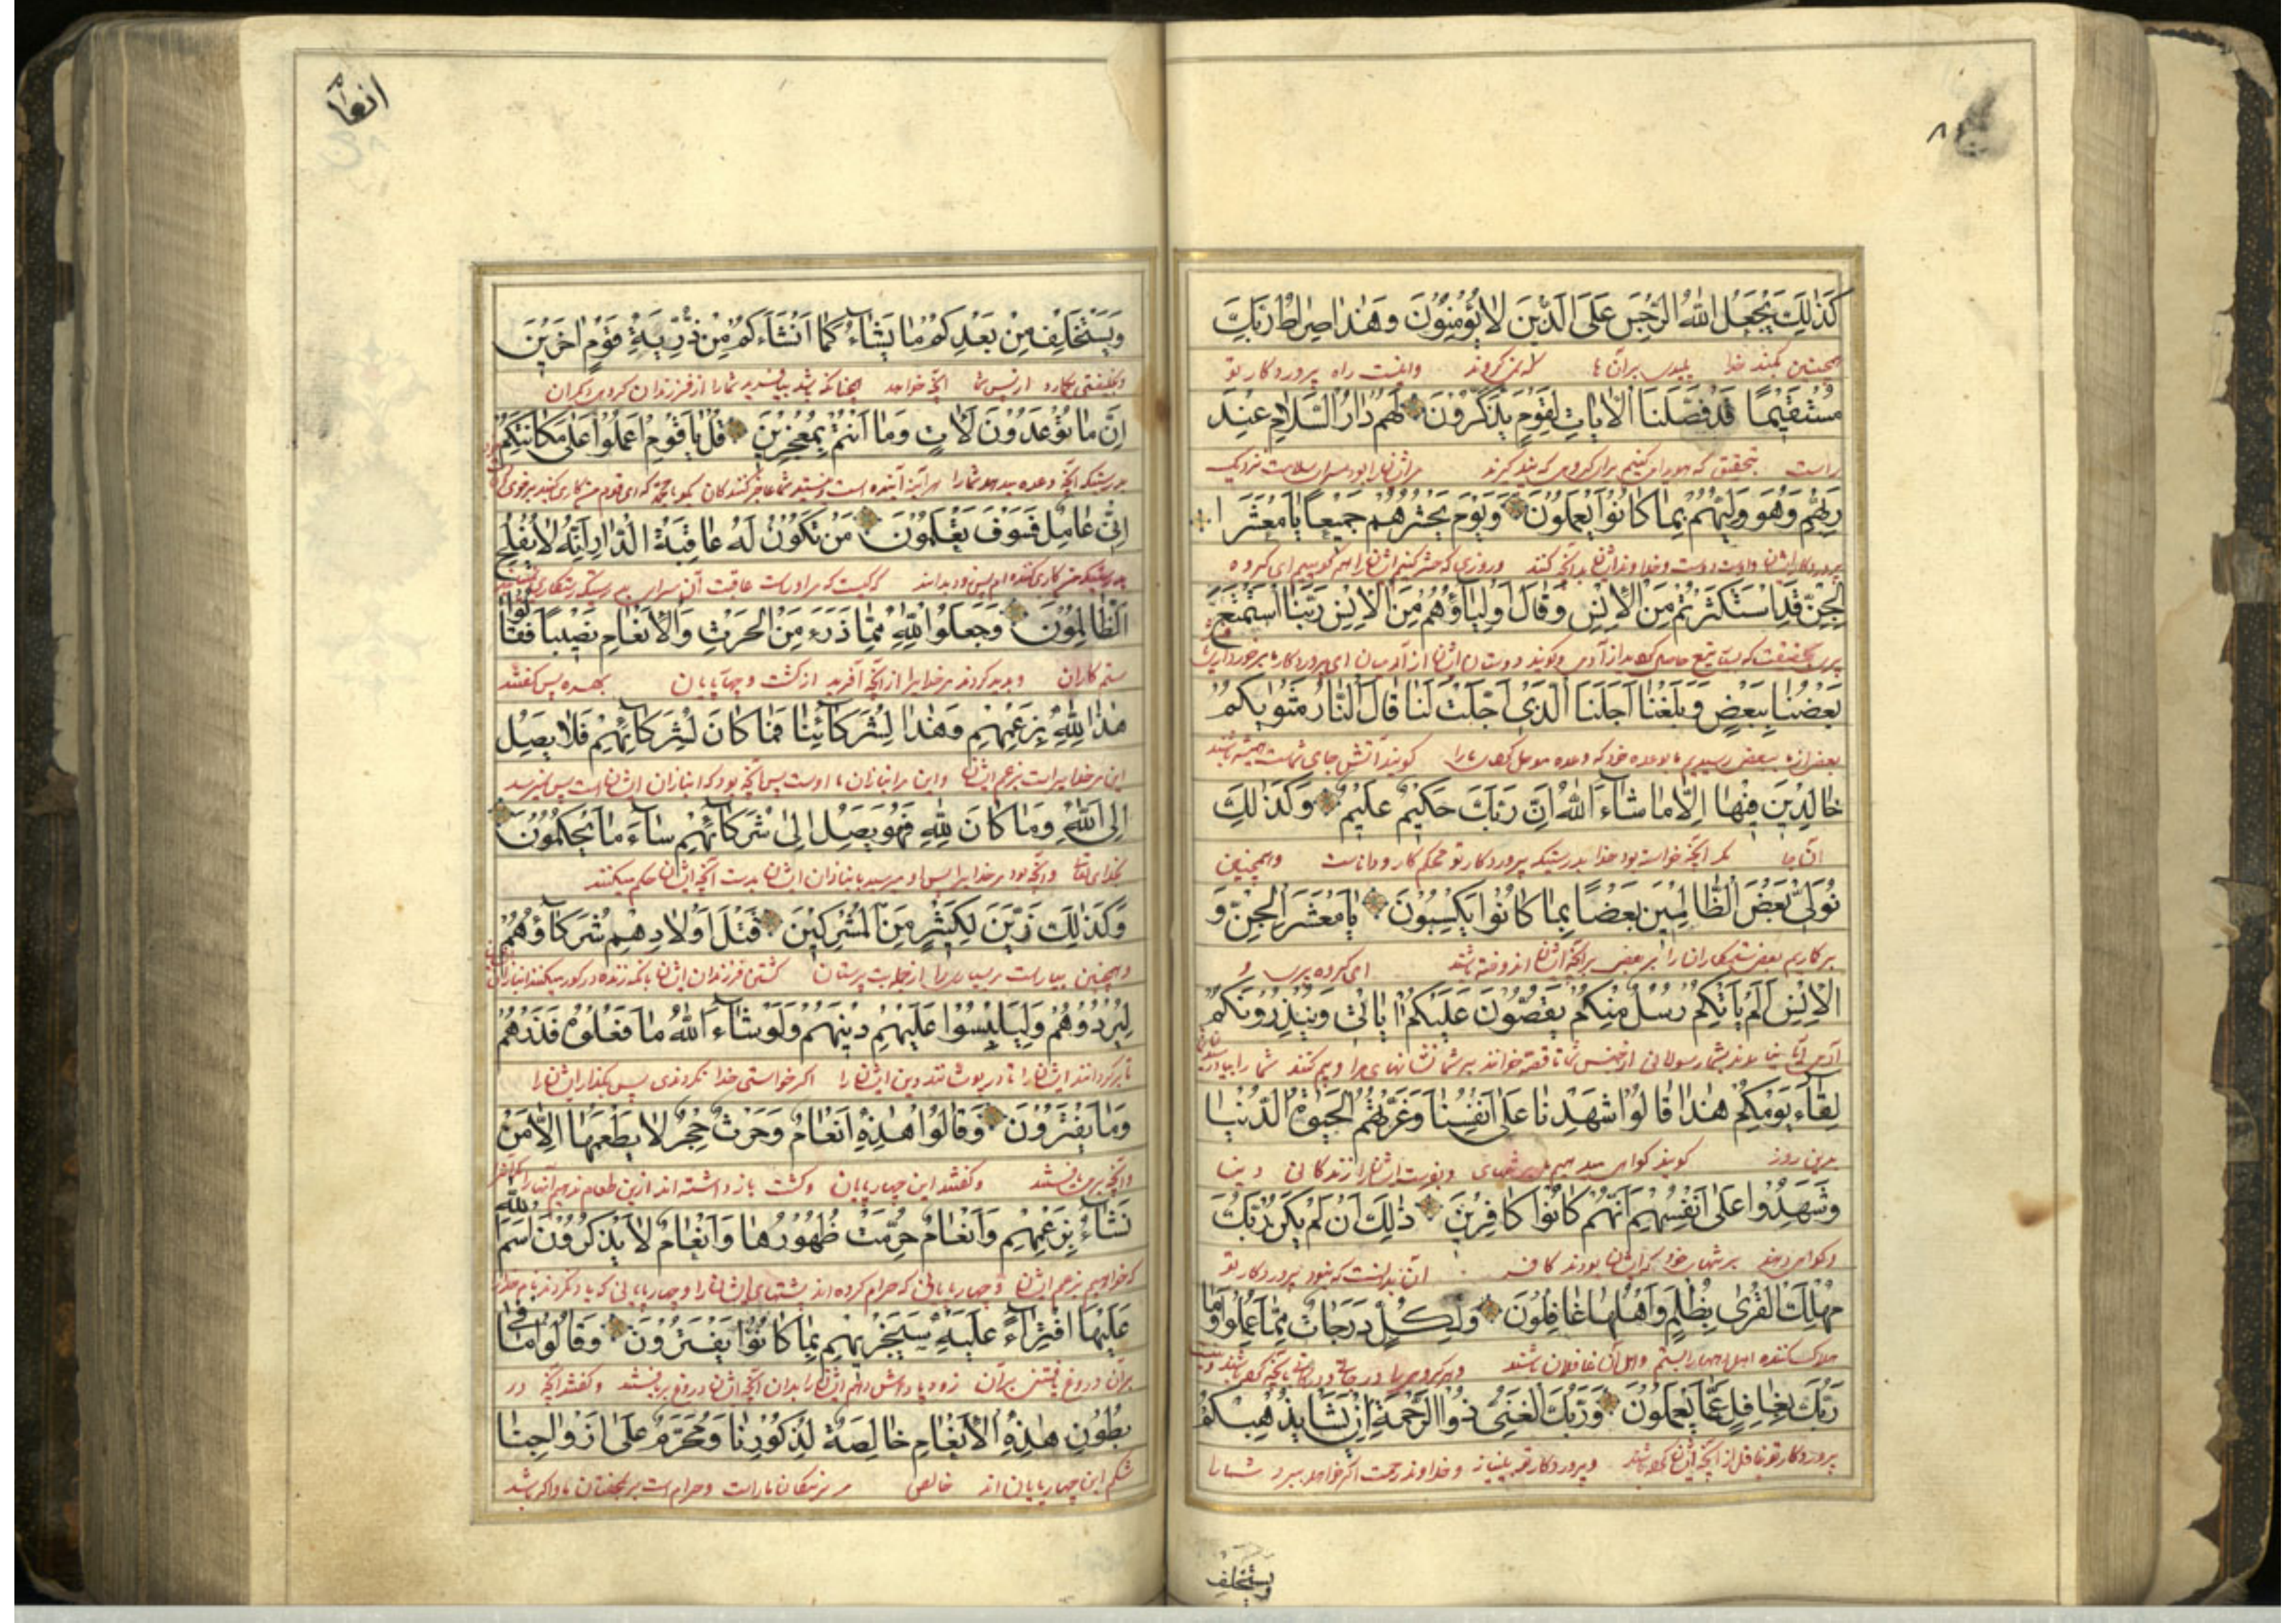 ٨
كَذٰلِكَ يَجْعَلُ اللّٰهُ الرِّجْسَ عَلَى الَّذينَ لا يُؤْمِنُونَ وَهٰذا صِراطُ رَبِّكَ
همچنین کند خدا پلیدی بر آن‌ها که نمی‌گروند و اینست راه پروردکار تو
مُسْتَقيمًا قَدْ فَصَّلْنَا الْاٰياتِ لِقَوْمٍ يَذَّكَّرُونَ لَهُمْ دارُ السَّلامِ عِنْدَ
راست بتحقیق که کنیم برای کروهی که پند کیرند سرای سلامت نزدیک
رَبِّهِمْ وَهُوَ وَلِيُّهُمْ بِما كانُوا يَعْمَلُونَ وَيَوْمَ يَحْشُرُهُمْ جَميعًا يا مَعْشَرَ ا
پروردکار ایشان و اوست دوست و خداوند ایشان بدانچه کنند و روزی که حشر کنیم ایشانرا همه کوییم ای کروه
لْجِنِّ قَدِ اسْتَكْثَرْتُمْ مِنَ الْاِنْسِ وَقالَ اَوْلِياؤُهُمْ مِنَ الْاِنْسِ رَبَّنَا اسْتَمْتَعَ
از آدمی و کویند دوستان ایشان از آدمیان ای پروردکار ما
بَعْضُنا بِبَعْضٍ وَبَلَغْنا اَجَلَنَا الَّذى اَجَّلْتَ لَنا قالَ النّارُ مَثْوٰيكُمْ
بعضی از ما ببعضی رسیدیم ما بوعده خود که ما را کویند آتش جای شماست همیشه باشند
خالِدينَ فيها اِلّا ما شاءَ اللّٰهُ اِنَّ رَبَّكَ حَكيمٌ عَليمٌ وَكَذٰلِكَ
مکر آنچه خواسته بود خدا بدرستیکه پروردکار تو محکم کار و داناست و همچنین
نُوَلّى بَعْضَ الظّالِمينَ بَعْضًا بِما كانُوا يَكْسِبُونَ يا مَعْشَرَ الْجِنِّ وَ
بر کاریم بعضی ستمکارانرا بر بعضی بر آنچه ایشان اندوخته باشند ای کروه پری و
الْاِنْسِ اَلَمْ يَاْتِكُمْ رُسُلٌ مِنْكُمْ يَقُصُّونَ عَلَيْكُمْ اٰياتى وَيُنْذِرُونَكُمْ
آدمی بشما رسولانی از جنس شما تا قصه خوانند بر شما نشانهای مرا و بیم کنند شما را
لِقاءَ يَوْمِكُمْ هٰذا قالُوا شَهِدْنا عَلٰى اَنْفُسِنا وَغَرَّتْهُمُ الْحَيٰوةُ الدُّنْيا
بدین روز کویند کواهی میدهیم زندکانی دنیا
وَشَهِدُوا عَلٰى اَنْفُسِهِمْ اَنَّهُمْ كانُوا كافِرينَ ذٰلِكَ اَنْ لَمْ يَكُنْ رَبُّكَ
و کواهی دهند بر تنهای خود که ایشان بودند کافر آن بدانست که نبود پروردکار تو
مُهْلِكَ الْقُرٰى بِظُلْمٍ وَاَهْلُها غافِلُونَ وَلِكُلٍّ دَرَجاتٌ مِمّا عَمِلُوا وَما
هلاک کننده بستم و اهل آن غافلان باشند
رَبُّكَ بِغافِلٍ عَمّا يَعْمَلُونَ وَرَبُّكَ الْغَنِىُّ ذُو الرَّحْمَةِ اِنْ يَشَاْ يُذْهِبْكُمْ
پروردکار تو غافل از آنچه و پروردکار تو بینیاز و خداوند رحمت اکر خواهد ببرد شما را
ويستخلف
انعام
وَيَسْتَخْلِفْ مِنْ بَعْدِكُمْ ما يَشاءُ كَما اَنْشَاَكُمْ مِنْ ذُرِّيَّةِ قَوْمٍ اٰخَرينَ
از پس شما آنچه خواهد چنانکه شما را از فرزندان کروهی دیکران
اِنَّ ما تُوعَدُونَ لَاٰتٍ وَما اَنْتُمْ بِمُعْجِزينَ قُلْ يا قَوْمِ اعْمَلُوا عَلٰى مَكانَتِكُمْ
بدرستیکه آنچه وعده شما را هر آینه آینده است و نیستید شما عاجز کنندکان بکو
اِنّى عامِلٌ فَسَوْفَ تَعْلَمُونَ مَنْ تَكُونُ لَهُ عاقِبَةُ الدّارِ اِنَّهُ لا يُفْلِحُ
بدرستیکه من کاری کننده‌ام پس زود بدانند که کیست که مر او راست عاقبت آن سرای بدرستیکه رستکاری
الظّالِمُونَ وَجَعَلُوا لِلّٰهِ مِمّا ذَرَءَ مِنَ الْحَرْثِ وَالْاَنْعامِ نَصيبًا فَقالُوا
ستمکاران و پدید کردند مر خدایرا از آنچه آفرید از کشت و چهارپایان بهره پس کفتند
هٰذا لِلّٰهِ بِزَعْمِهِمْ وَهٰذا لِشُرَكائِنا فَما كانَ لِشُرَكائِهِمْ فَلا يَصِلُ
این مر خدایراست بزعم ایشان و این مر انبازان ما راست پس آنچه بود که انبازان ایشان است پس نمیرسد
اِلَى اللّٰهِ وَما كانَ لِلّٰهِ فَهُوَ يَصِلُ اِلٰى شُرَكائِهِمْ ساءَ ما يَحْكُمُونَ
بخدای تعالی و آنچه بود مر خدایرا پس او میرسد بانبازان ایشان بدست آنچه ایشان حکم میکنند
وَكَذٰلِكَ زَيَّنَ لِكَثيرٍ مِنَ الْمُشْرِكينَ قَتْلَ اَوْلادِهِمْ شُرَكاؤُهُمْ
و همچنین بیاراست بر بسیاری را از جمله بت پرستان کشتن فرزندان ایشان
لِيُرْدُوهُمْ وَلِيَلْبِسُوا عَلَيْهِمْ دينَهُمْ وَلَوْ شاءَ اللّٰهُ ما فَعَلُوهُ فَذَرْهُمْ
ایشانرا دین ایشانرا اکر خواستی خدا نکردندی پس بکذار ایشانرا
وَما يَفْتَرُونَ وَقالُوا هٰذِهِ اَنْعامٌ وَحَرْثٌ حِجْرٌ لا يَطْعَمُها اِلّا مَنْ
و کفتند این چهارپایان و کشت باز داشته‌اند
نَشاءُ بِزَعْمِهِمْ وَاَنْعامٌ حُرِّمَتْ ظُهُورُها وَاَنْعامٌ لا يَذْكُرُونَ اسْمَ اللّٰهِ
که خواهیم بزعم ایشان و چهارپایانی که حرام کرده‌اند پشتهای ایشانرا و چهارپایانی که یاد نکردند نام خدا
عَلَيْهَا افْتِراءً عَلَيْهِ سَيَجْزيهِمْ بِما كانُوا يَفْتَرُونَ وَقالُوا ما فى
بر آن دروغ یافتن بر آن زود پاداش دهم ایشانرا بدان آنچه ایشان دروغ بر بافتند و کفتند آنچه در
بُطُونِ هٰذِهِ الْاَنْعامِ خالِصَةٌ لِذُكُورِنا وَمُحَرَّمٌ عَلٰى اَزْواجِنا
شکم این چهارپایان‌اند خالص ما راست و حرام است بر جفتان ما و اکر باشد